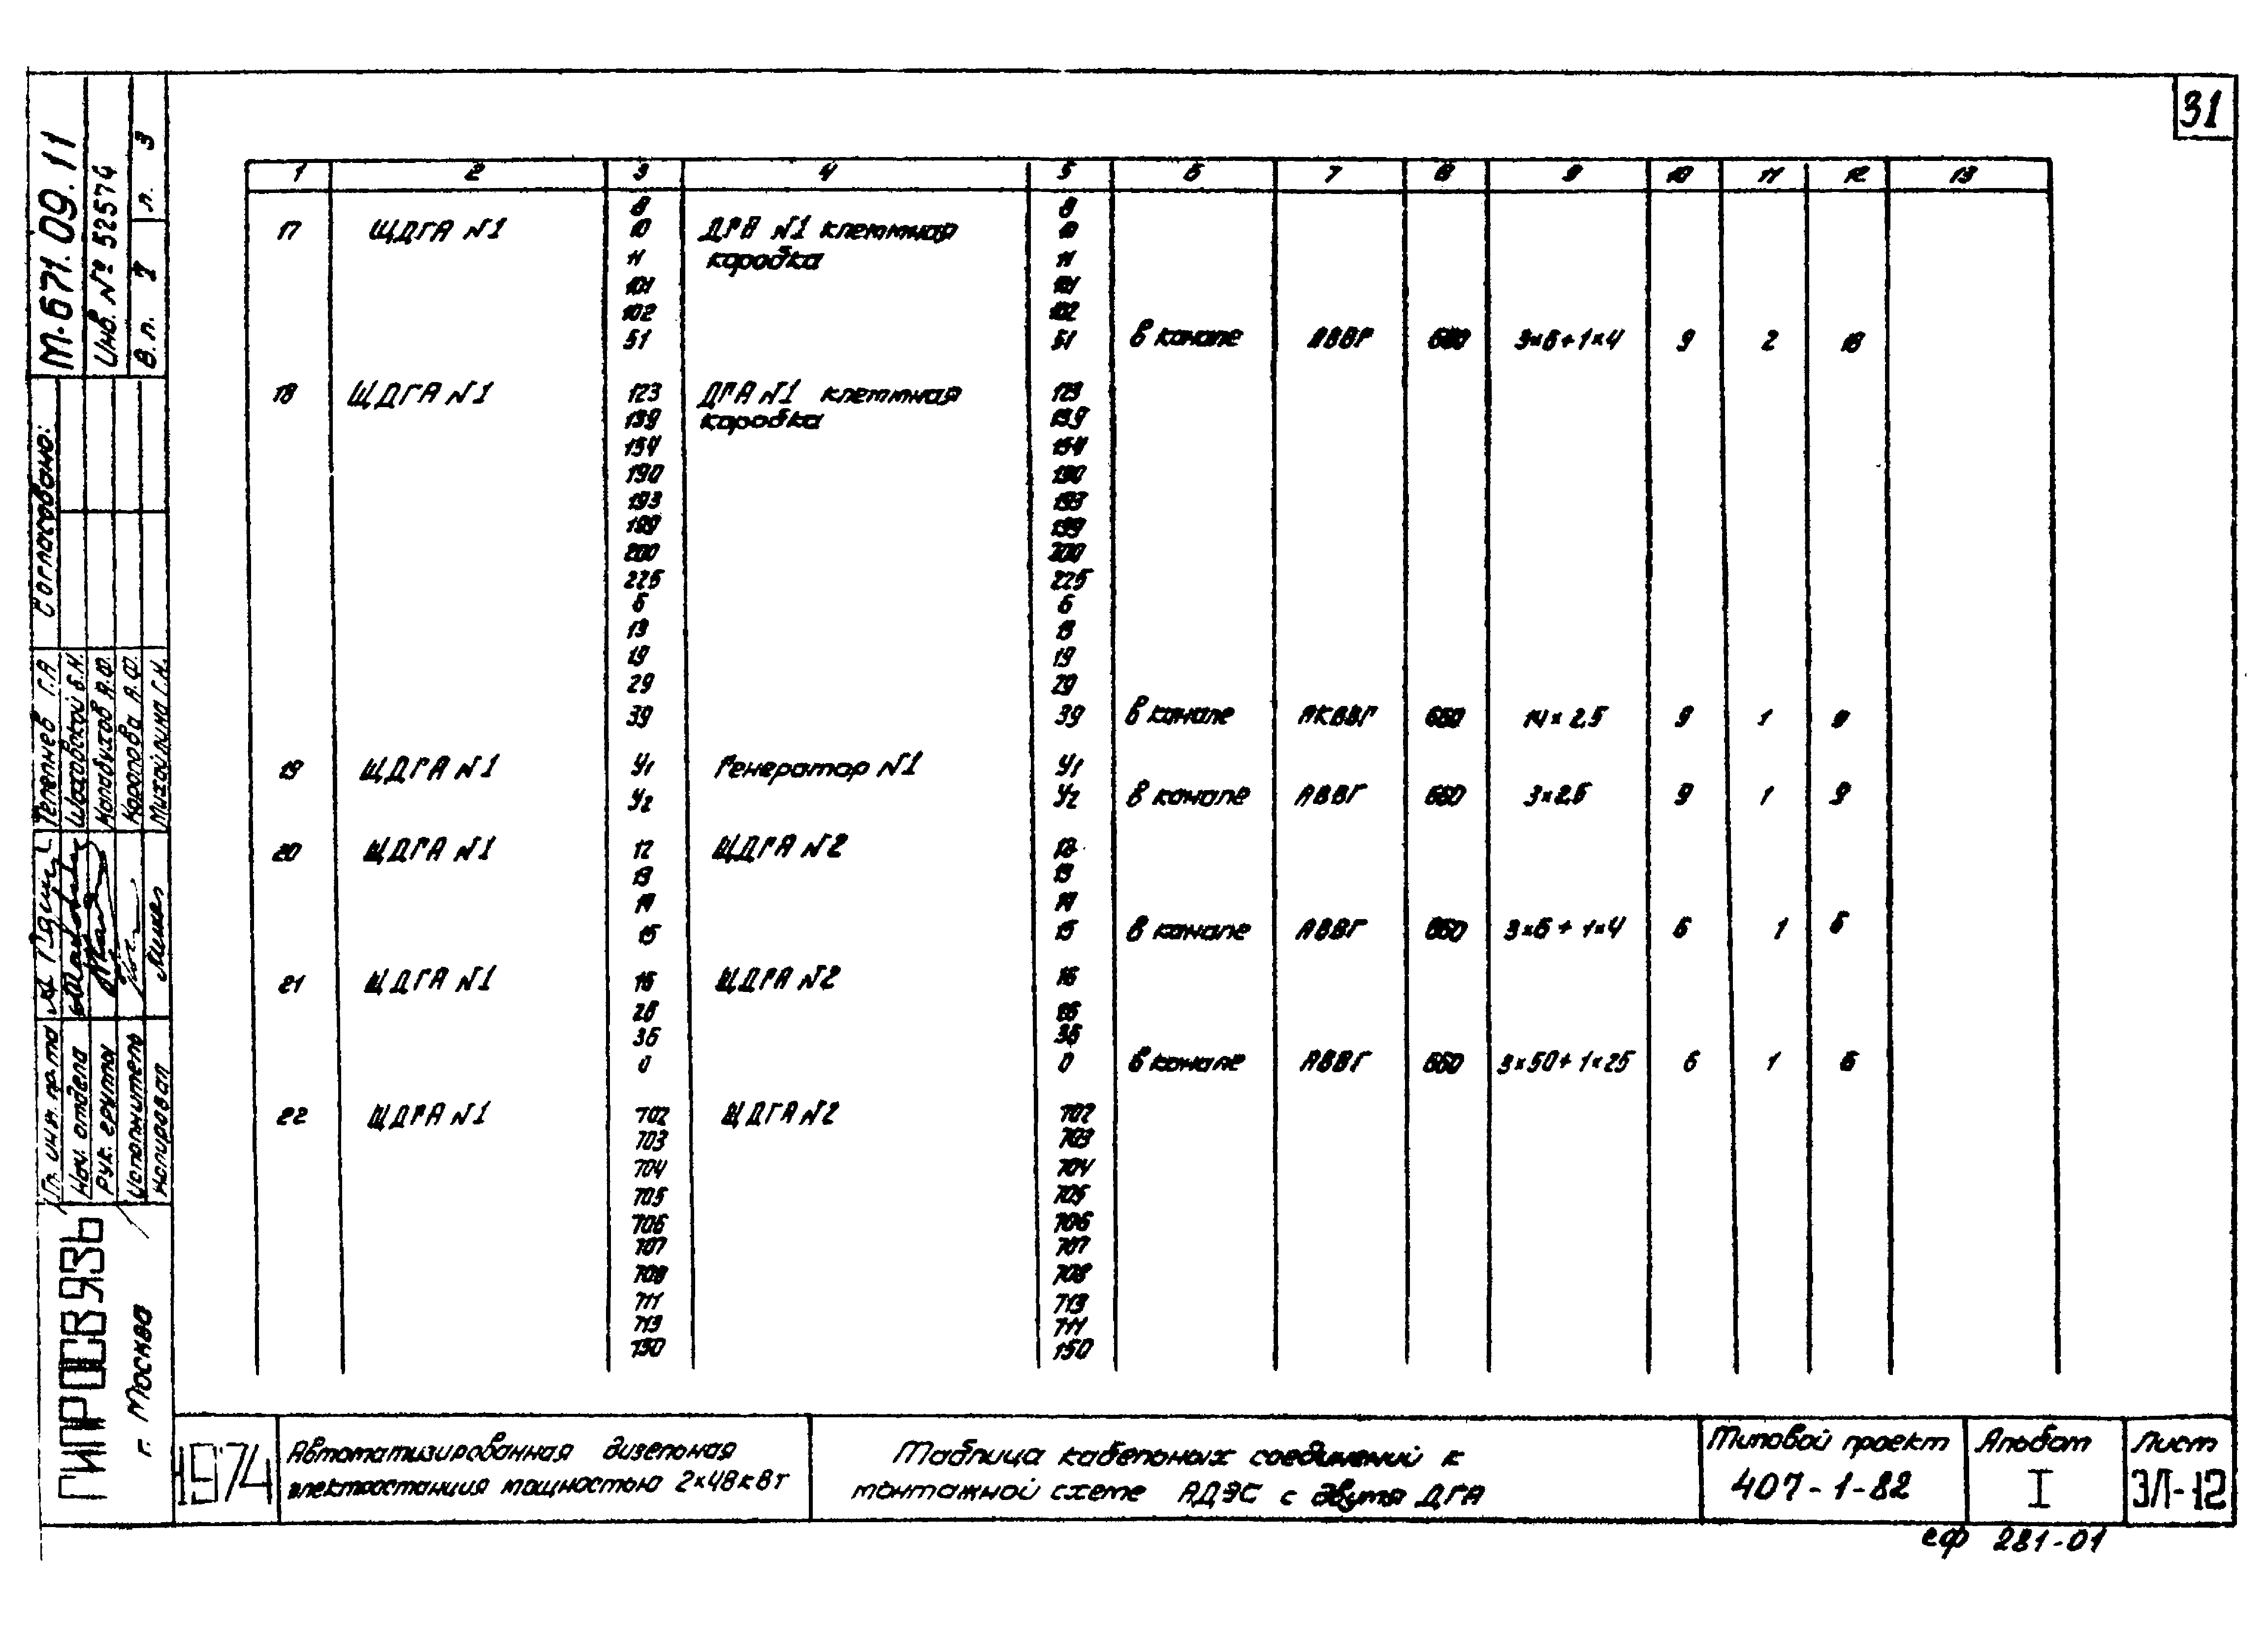 31
1 2 3 4 5 6 7 8 9 10 11 12 13
8 8
17 ЩДГА №1 10 ДГА №1 клеммная 10
11 коробка 11
101 101
102 102
51 51 в канале АВВГ 660 3×6+1×4 9 2 18
18 ЩДГА №1 123 ДГА №1 клеммная 123
139 коробка 139
154 154
190 190
193 193
199 199
200 200
225 225
6 6
13 13
19 19
29 29
39 39 в канале АКВВГ 660 14×2.5 9 1 9
19 ЩДГА №1 У1 Генератор №1 У1
У2 У2 в канале АВВГ 660 3×2.5 9 1 9
20 ЩДГА №1 12 ЩДГА №2 12
13 13
14 14
15 15 в канале АВВГ 660 3×6+1×4 6 1 6
21 ЩДГА №1 16 ЩДГА №2 16
26 26
36 36
0 0 в канале АВВГ 660 3×50+1×25 6 1 6
22 ЩДГА №1 702 ЩДГА №2 702
703 703
704 704
705 705
706 706
707 707
708 708
711 713
713 711
150 150
М.671.09.11
Инв. № 52574
В.л. 7 л. 3
Согласовано:
Гл. инж. пр-та Тепенев Г.А
Нач. отдела Шаховской Б.Н.
Рук. группы Калабухов А.Ф.
Исполнитель Каропова А.Ф.
Копировал Михайлина Г.К.
ГИПРОСВЯЗЬ
г. Москва
1974
Автоматизированная дизельная
электростанция мощностью 2×48кВт
Таблица кабельных соединений к
монтажной схеме АДЭС с двумя ДГА
Типовой проект
407-1-82
Альбом
I
Лист
ЭЛ-12
сф 281-01